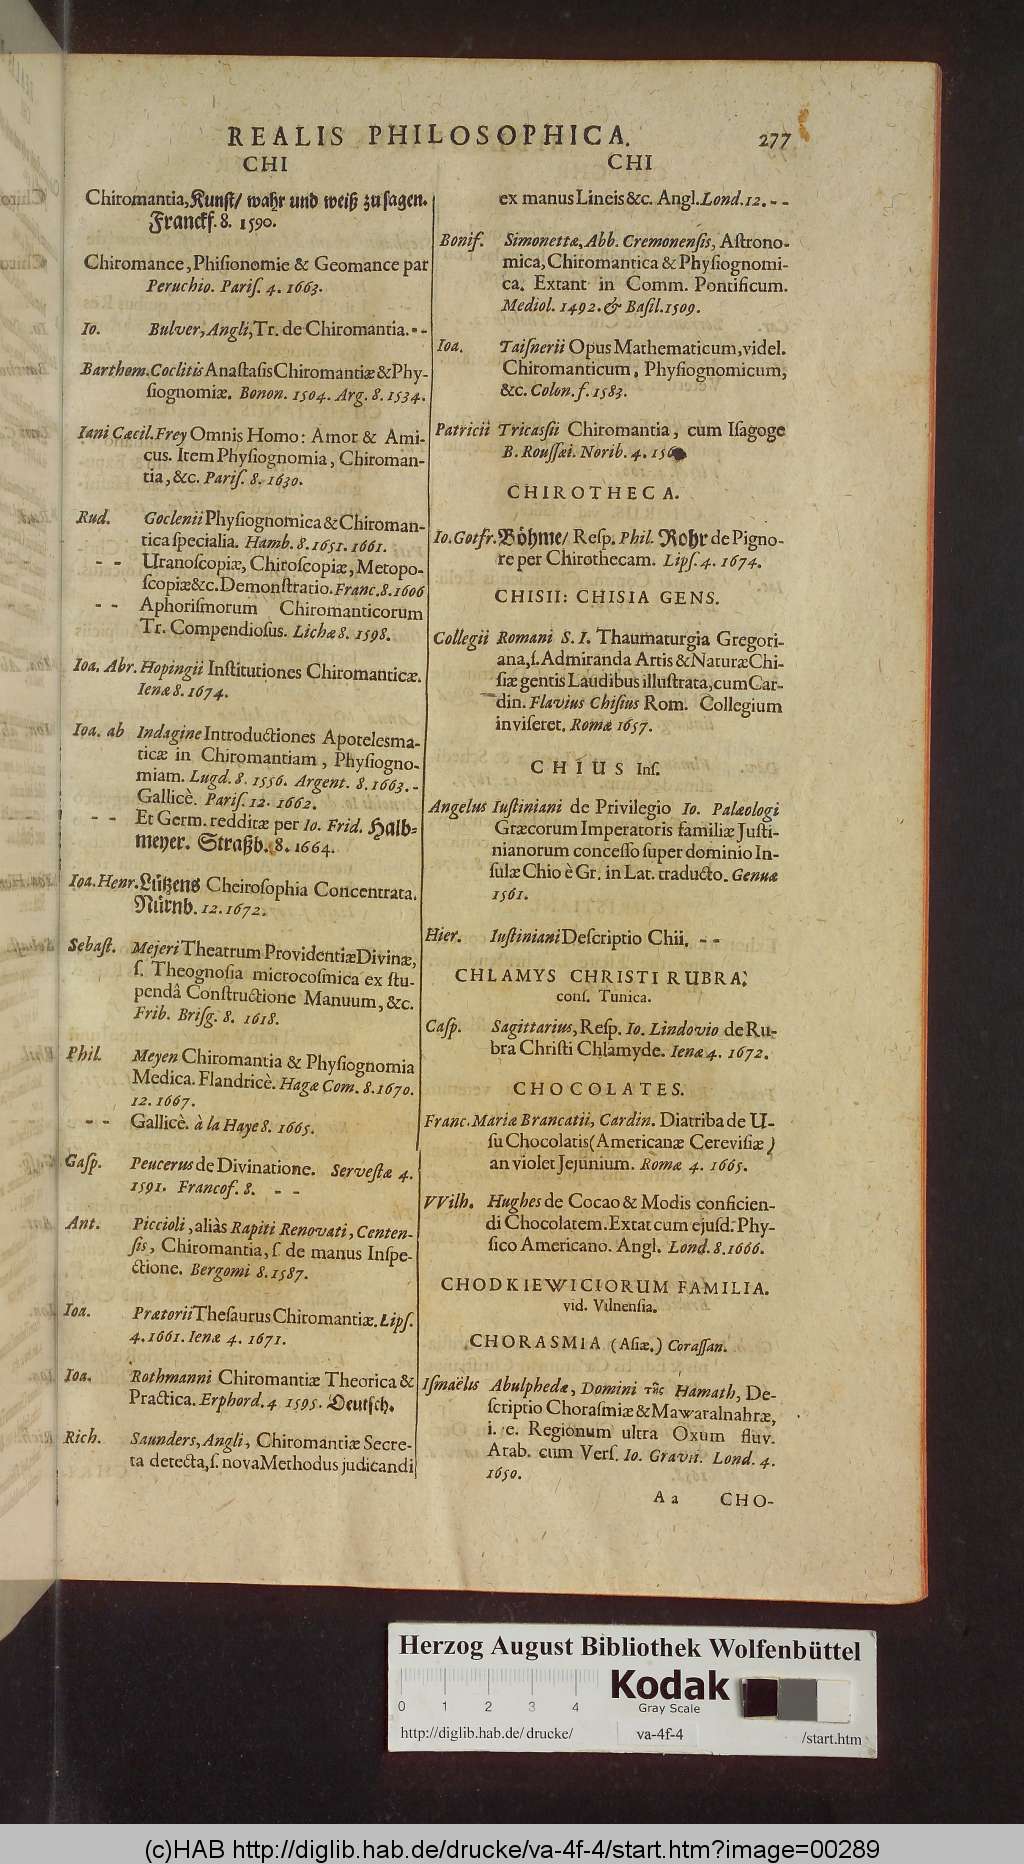 REALIS PHILOSOPHICA. 277
CHI
Chiromantia, Kunſt/ wahr und weiß zu ſagen.
Franckf. 8. 1590.
Chiromance, Phiſionomie & Geomance par
Peruchio. Pariſ. 4. 1663.
Io. Bulver, Angli, Tr. de Chiromantia. - -
Barthom. Coclitis Anaſtaſis Chiromantiæ & Phy-
ſiognomiæ. Bonon. 1504. Arg. 8. 1534.
Iani Cæcil. Frey Omnis Homo: Amor & Ami-
cus. Item Phyſiognomia, Chiroman-
tia, &c. Pariſ. 8. 1630.
Rud. Goclenii Phyſiognomica & Chiroman-
tica ſpecialia. Hamb. 8. 1651. 1661.
- - Uranoſcopiæ, Chiroſcopiæ, Metopo-
ſcopiæ &c. Demonſtratio. Franc. 8. 1606
- - Aphoriſmorum Chiromanticorum
Tr. Compendioſus. Lichæ 8. 1598.
Ioa. Abr. Hopingii Inſtitutiones Chiromanticæ.
Ienæ 8. 1674.
Ioa. ab Indagine Introductiones Apoteleſma-
ticæ in Chiromantiam, Phyſiogno-
miam. Lugd. 8. 1556. Argent. 8. 1663. -
Gallicè. Pariſ. 12. 1662.
- - Et Germ. redditæ per Io. Frid. Halb-
meyer. Straßb. 8. 1664.
Ioa. Henr. Lützens Cheiroſophia Concentrata.
Nürnb. 12. 1672.
Sebaſt. Mejeri Theatrum Providentiæ Divinæ,
ſ. Theognoſia microcoſmica ex ſtu-
pendâ Conſtructione Manuum, &c.
Frib. Briſg. 8. 1618.
Phil. Meyen Chiromantia & Phyſiognomia
Medica. Flandricè. Hagæ Com. 8. 1670.
12. 1667.
- - Gallicè. à la Haye 8. 1665.
Gaſp. Peucerus de Divinatione. Serveſtæ 4.
1591. Francof. 8. - -
Ant. Piccioli, aliàs Rapiti Renovati, Centen-
ſis, Chiromantia, ſ de manus Inſpe-
ctione. Bergomi 8. 1587.
Ioa. Prætorii Theſaurus Chiromantiæ. Lipſ.
4. 1661. Ienæ 4. 1671.
Ioa. Rothmanni Chiromantiæ Theorica &
Practica. Erphord. 4 1595. Deutſch.
Rich. Saunders, Angli, Chiromantiæ Secre-
ta detecta, ſ. nova Methodus judicandi
CHI
ex manus Lineis &c. Angl. Lond. 12. - -
Bonif. Simonettæ, Abb. Cremonenſis, Aſtrono-
mica, Chiromantica & Phyſiognomi-
ca. Extant in Comm. Pontificum.
Mediol. 1492. & Baſil. 1509.
Ioa. Taiſnerii Opus Mathematicum, videl.
Chiromanticum, Phyſiognomicum,
&c. Colon. f. 1583.
Patricii Tricaſſii Chiromantia, cum Iſagoge
B. Rouſſæi. Norib. 4. 156
CHIROTHECA.
Io. Gotfr. Böhme/ Reſp. Phil. Rohr de Pigno-
re per Chirothecam. Lipſ. 4. 1674.
CHISII: CHISIA GENS.
Collegii Romani S. I. Thaumaturgia Gregori-
ana, ſ. Admiranda Artis & Naturæ Chi-
ſiæ gentis Laudibus illuſtrata, cum Car-
din. Flavius Chiſius Rom. Collegium
inviſeret. Romæ 1657.
CHIUS Inſ.
Angelus Iuſtiniani de Privilegio Io. Palæologi
Græcorum Imperatoris familiæ Juſti-
nianorum conceſſo ſuper dominio In-
ſulæ Chio è Gr. in Lat. traducto. Genuæ
1561.
Hier. Iuſtiniani Deſcriptio Chii. - -
CHLAMYS CHRISTI RUBRA:
conſ. Tunica.
Caſp. Sagittarius, Reſp. Io. Lindovio de Ru-
bra Chriſti Chlamyde. Ienæ 4. 1672.
CHOCOLATES.
Franc. Mariæ Brancatii, Cardin. Diatriba de U-
ſu Chocolatis (Americanæ Cereviſiæ)
an violet Jejunium. Romæ 4. 1665.
VVilh. Hughes de Cocao & Modis conficien-
di Chocolatem. Extat cum ejuſd. Phy-
ſico Americano. Angl. Lond. 8. 1666.
CHODKIEWICIORUM FAMILIA.
vid. Vilnenſia.
CHORASMIA (Aſiæ.) Coraſſan.
Iſmaëlis Abulphedæ, Domini τῆς Hamath, De-
ſcriptio Choraſmiæ & Mawaralnahræ,
i. e. Regionum ultra Oxum fluv.
Arab. cum Verſ. Io. Gravii. Lond. 4.
1650.
A a CHO-
Herzog August Bibliothek Wolfenbüttel
0 1 2 3 4
Kodak
Gray Scale
http://diglib.hab.de/drucke/ va-4f-4 /start.htm
(c)HAB http://diglib.hab.de/drucke/va-4f-4/start.htm?image=00289